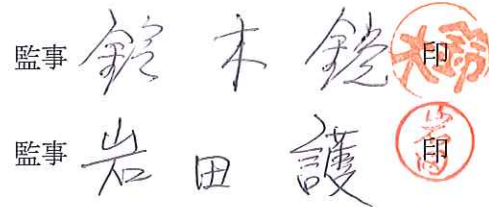 監事 鈴木 鏡 印
監事 岩田 護 印